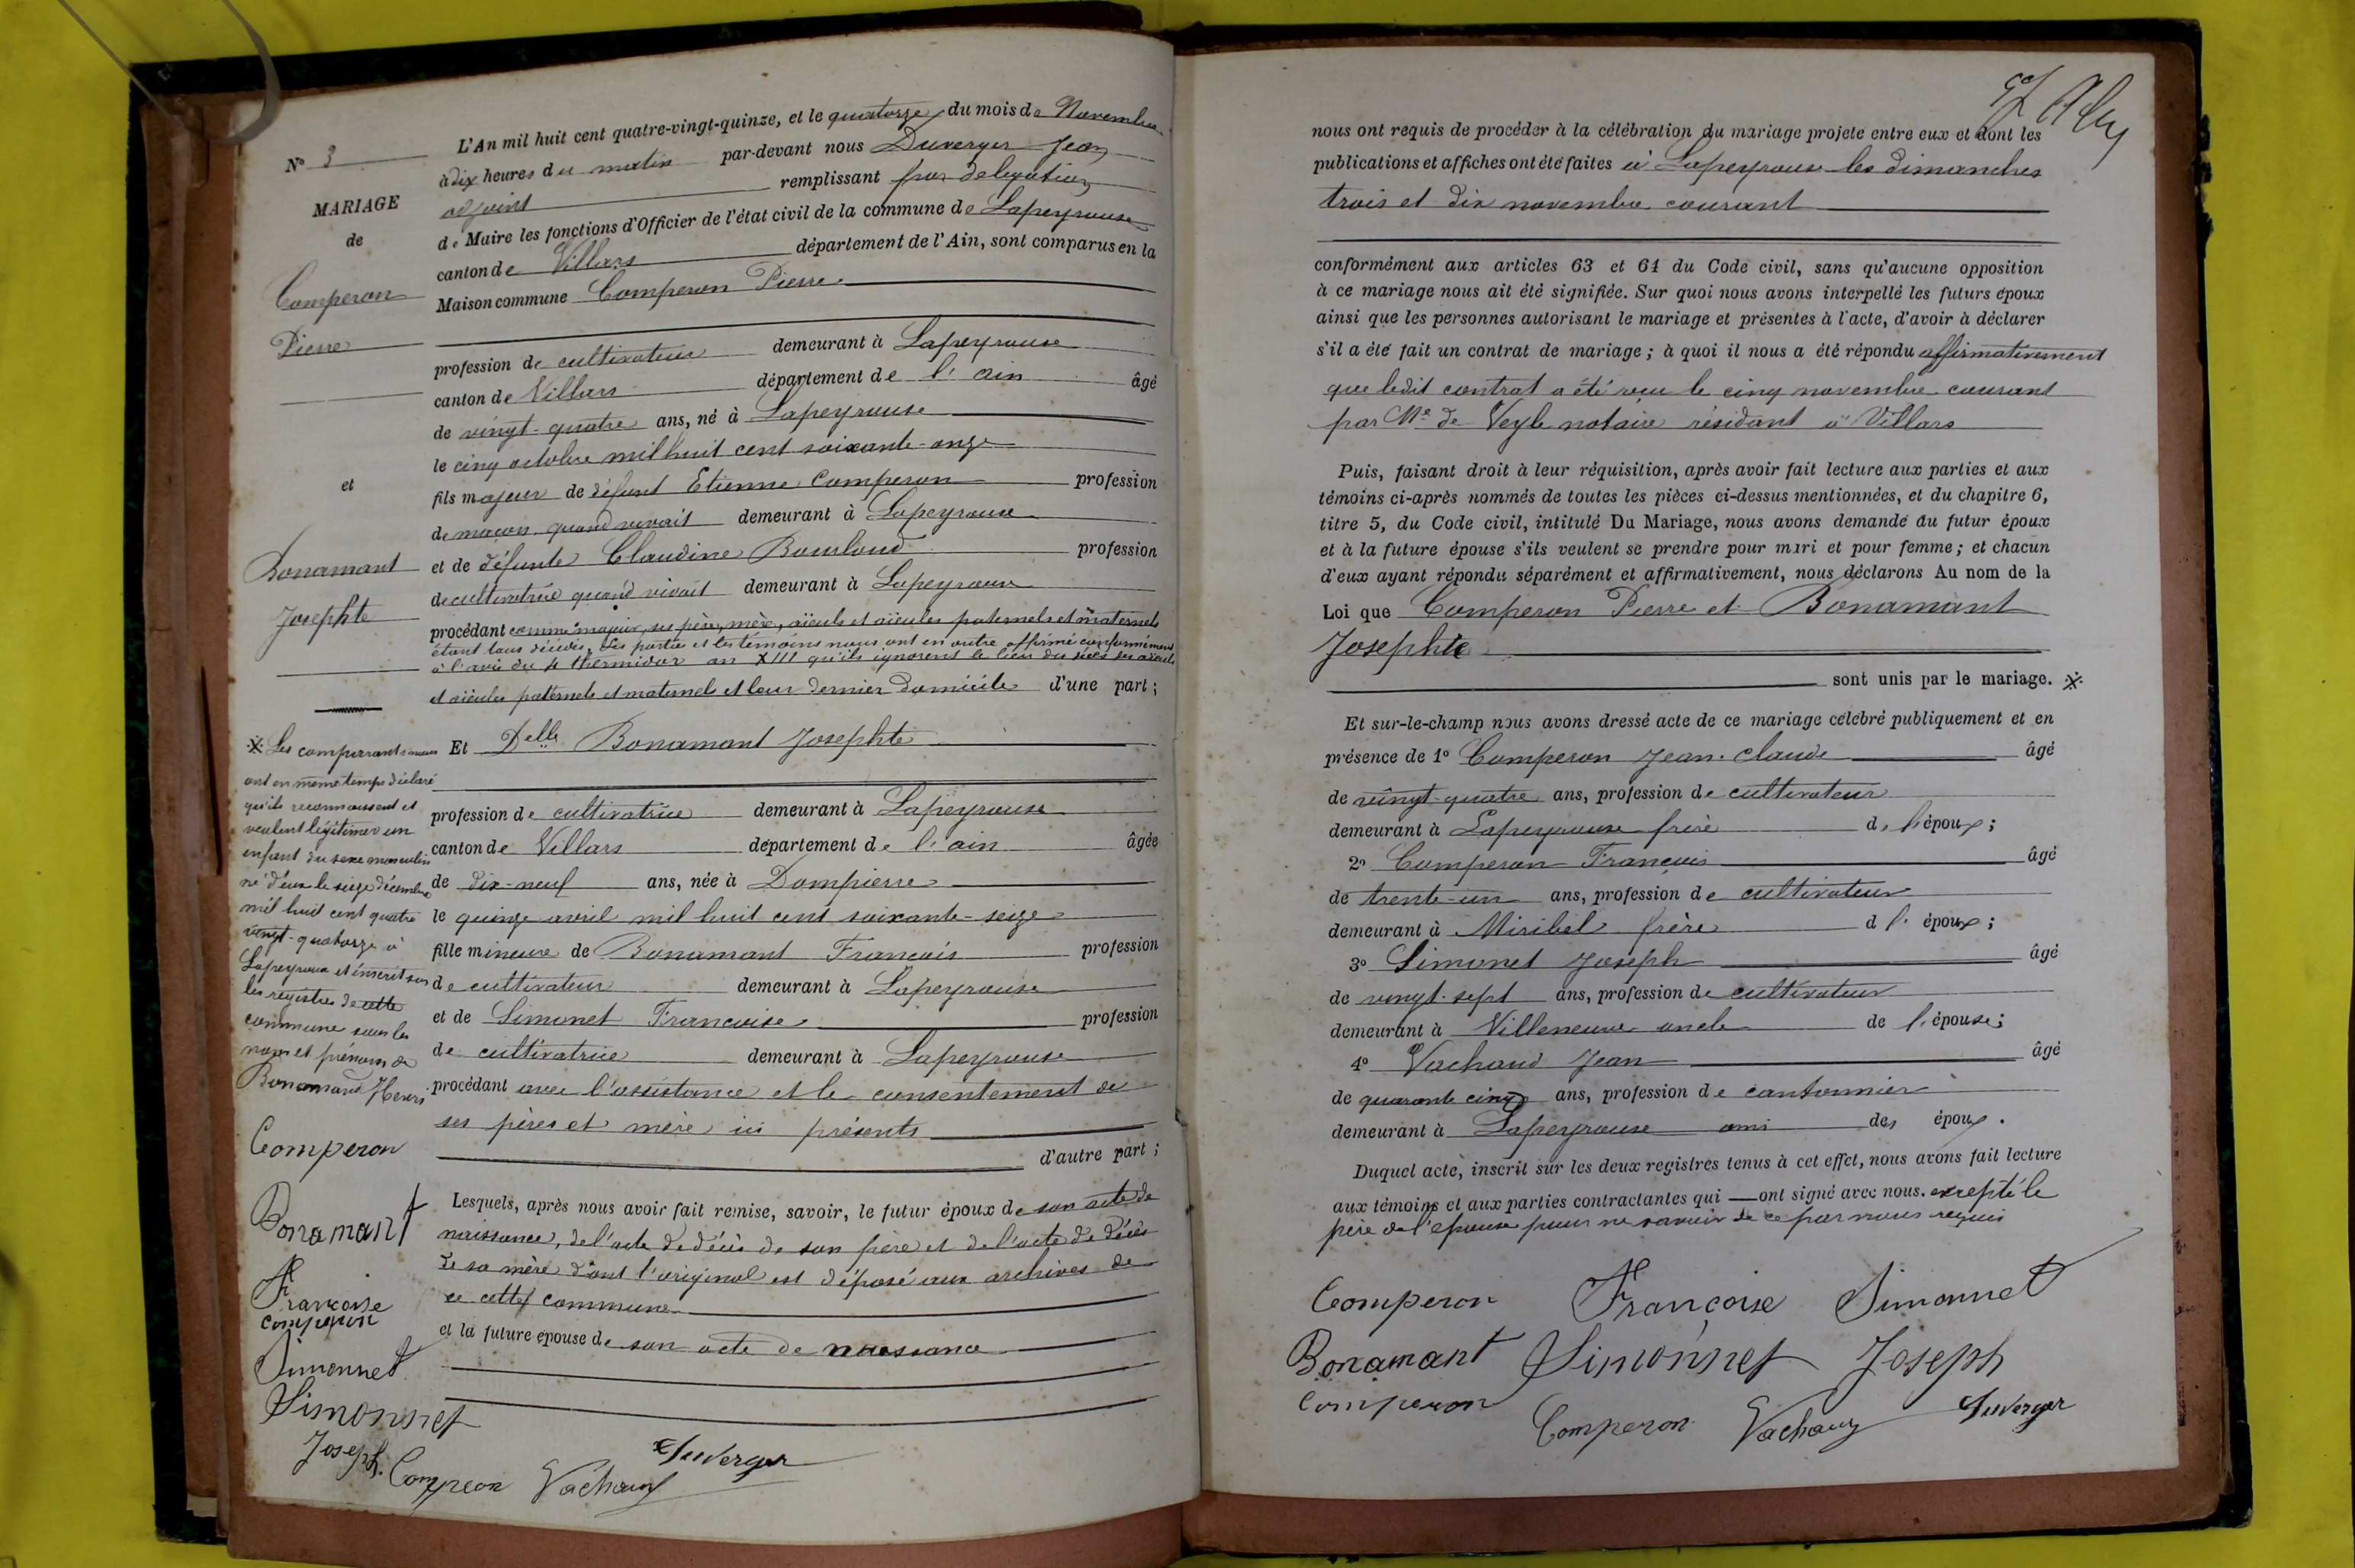 N° 3
MARIAGE
de
Comperon
Pierre
et
Bonamant
Josephte
※ Les comparants nous
ont en même temps déclaré
qu'ils reconnaissent et
veulent légitimer un
enfant du sexe masculin
né d'eux le seize décembre
mil huit cent quatre
vingt-quatorze à
Lapeyrouse et inscrit sur
les registres de cette
commune sous les
nom et prénom de
Bonamand Henri
Comperon
Bonamant
Francoise
comperon
Simonnet
Simonnet
Joseph
Comperon Vachaud
Duverger
L'An mil huit cent quatre-vingt-quinze, et le quatorze du mois de Novembre
à dix heures du matin par-devant nous Duverger Jean
adjoint remplissant par délégation
de Maire les fonctions d'Officier de l'état civil de la commune de Lapeyrouse
canton de Villars département de l'Ain, sont comparus en la
Maison commune Comperon Pierre
profession de cultivateur demeurant à Lapeyrouse
canton de Villars département de l'ain âgé
de vingt-quatre ans, né à Lapeyrouse
le cinq octobre mil huit cent soixante-onze
fils majeur de défunt Etienne Comperon profession
de maçon quand vivait demeurant à Lapeyrouse
et de défunte Claudine Bourloud profession
de cultivatrice quand vivait demeurant à Lapeyrouse
procédant comme majeur, ses père, mère, aïeuls et aïeules paternels et maternels
étant tous décédés. Les parties et les témoins nous ont en outre affirmé conformément
à l'avis du 4 thermidor an XIII qu'ils ignorent le lieu du décès des aïeuls
et aïeules paternels et maternels et leur dernier domicile d'une part ;
Et Delle Bonamant Josephte
profession de cultivatrice demeurant à Lapeyrouse
canton de Villars département de l'ain âgée
de dix-neuf ans, née à Dompierre
le quinze avril mil huit cent soixante-seize
fille mineure de Bonamant Francois profession
de cultivateur demeurant à Lapeyrouse
et de Simonet Francoise profession
de cultivatrice demeurant à Lapeyrouse
procédant avec l'assistance et le consentement de
ses pères et mère ici présents
d'autre part ;
Lesquels, après nous avoir fait remise, savoir, le futur époux de son acte de
naissance, de l'acte de décès de son père et de l'acte de décès
de sa mère dont l'original est déposé aux archives de
ce cette commune
et la future épouse de son acte de naissance
nous ont requis de procéder à la célébration du mariage projeté entre eux et dont les
publications et affiches ont été faites à Lapeyrouse les dimanches
trois et dix novembre courant
conformément aux articles 63 et 64 du Code civil, sans qu'aucune opposition
à ce mariage nous ait été signifiée. Sur quoi nous avons interpellé les futurs époux
ainsi que les personnes autorisant le mariage et présentes à l'acte, d'avoir à déclarer
s'il a été fait un contrat de mariage ; à quoi il nous a été répondu affirmativement
que ledit contrat a été reçu le cinq novembre courant
par Me de Veyle notaire résidant à Villars
Puis, faisant droit à leur réquisition, après avoir fait lecture aux parties et aux
témoins ci-après nommés de toutes les pièces ci-dessus mentionnées, et du chapitre 6,
titre 5, du Code civil, intitulé Du Mariage, nous avons demandé au futur époux
et à la future épouse s'ils veulent se prendre pour mari et pour femme ; et chacun
d'eux ayant répondu séparément et affirmativement, nous déclarons Au nom de la
Loi que Comperon Pierre et Bonamant
Josephte
sont unis par le mariage. ※
Et sur-le-champ nous avons dressé acte de ce mariage célébré publiquement et en
présence de 1° Comperon Jean-Claude âgé
de vingt-quatre ans, profession de cultivateur
demeurant à Lapeyrouse frère de l'époux ;
2° Comperon François âgé
de trente-un ans, profession de cultivateur
demeurant à Miribel frère d l' époux ;
3° Simonet Joseph âgé
de vingt-sept ans, profession de cultivateur
demeurant à Villeneuve oncle de l'épouse ;
4° Vachaud Jean âgé
de quarante cinq ans, profession de cantonnier
demeurant à Lapeyrouse ami des époux.
Duquel acte, inscrit sur les deux registres tenus à cet effet, nous avons fait lecture
aux témoins et aux parties contractantes qui ont signé avec nous. excepté le
père de l'épouse pour ne savoir de ce par nous requis
Comperon Françoise Simonnet
Bonamant Simonnet Joseph
Comperon
Comperon Vachaud Duverger